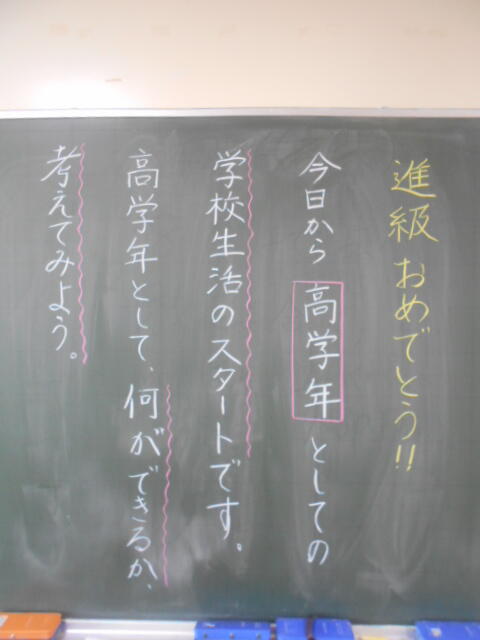 進級おめでとう!!
今日から高学年としての
学校生活のスタートです。
高学年として、何ができるか、
考えてみよう。